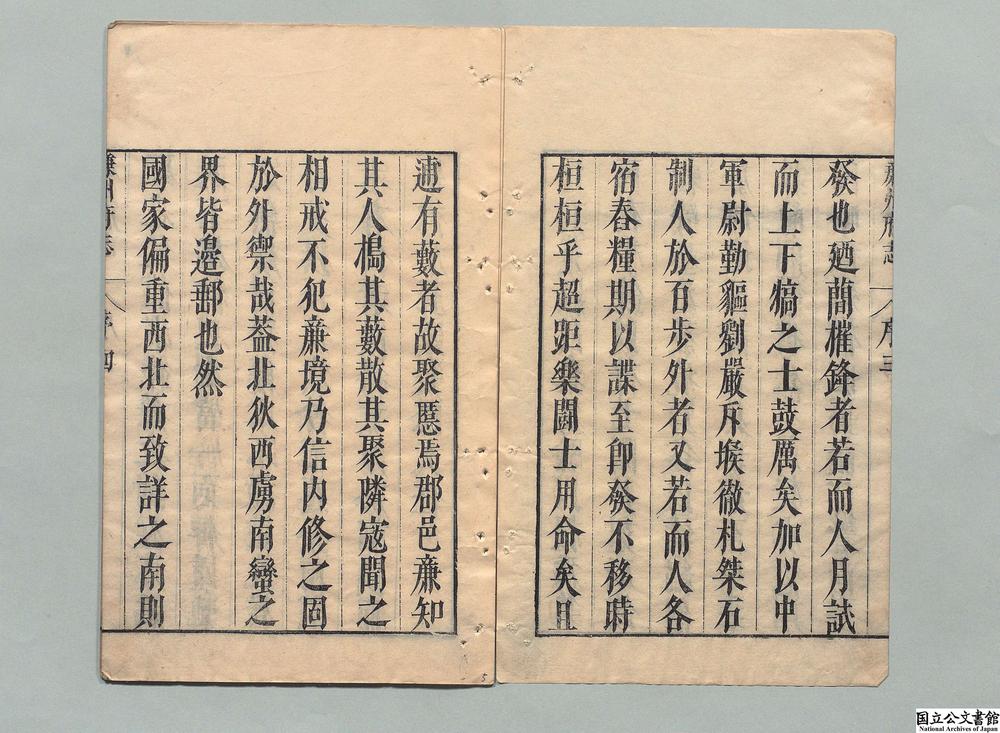 廉州府志 序三
發也廼蕳摧鋒者若而人月試
而上下犒之士鼓厲矣加以中
軍尉勤軀劉嚴斥堠徹札桀石
制人於百步外者又若而人各
宿舂糧期以諜至卽發不移時
桓桓乎超距樂鬪士用命矣且
逋有藪者故聚慝焉郡邑亷知
其人擣其藪散其聚隣寇聞之
相戒不犯亷境乃信內修之固
於外禦哉葢北狄西虜南蠻之
界皆邉郵也然
國家偏重西北而致詳之南則
廉州府志 序四
5
国立公文書館
National Archives of Japan